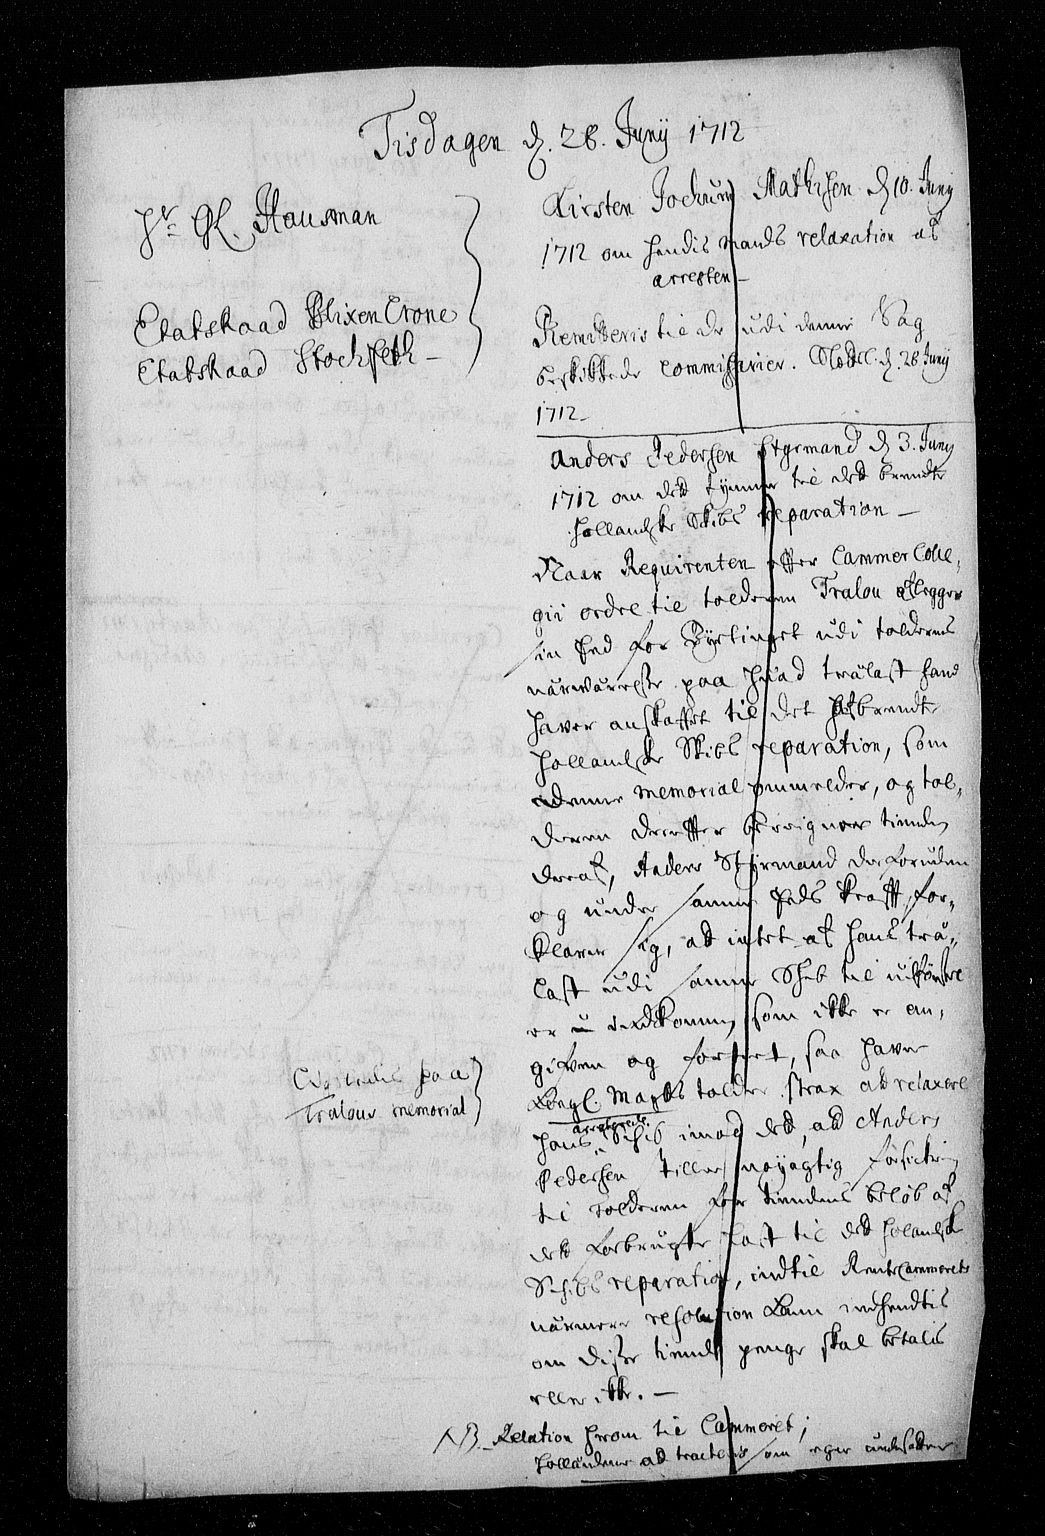 Tisdagen d. 28. Junij 1712
Hr. G. Hausman
Etatsraad Blixen Crone
Etatsraad Stochfleth
Kirsten Jochum Mathisen d. 10. Juny
1712 om hendis Mands relaxation af
arresten
Remitteris til de udi denne Sag
beskikkede Commissarier. d. 28 Junij
1712
Anders Pedersen Styrmand d. 3. Juny
1712 om det tymmer til det brendte
Hollandske Skibs reparation
Naar Requirenten effter Cammer Colle-
gii ordre til tolderen Tralou aflegger
sin Eed for Byetinget udi tolderens
nærwærelse paa hvad trælast hand
haver anskaffet til det brendte
Hollandske Skibs reparation, som
denne memorial ommelder, og tol-
deren dereffter beregner tienden
deraf, Anders Styrmand desforuden
og under samme Eeds krafft, for-
klarer sig, at intet af hans træ-
last udi samme Skib til
er indkommen, som ikke er an-
given og fortient, saa haver
Kongl. Mayts tolder strax at relaxere
hans arresterede Skib imod det, at Anders
Pedersen stiller nøyagtig forsickring
til tolderen for tiendens beløb af
det forbrugte Last til det Holandske
Schibs reparation, indtil Rentecammerets
nærmere resolution kand indhendtis
om disse tiende penge skal betalis
eller ikke.
Cvoteris paa
Tralous memorial
NB. Relation herom til Cammeret;
Hollænderne at tracteris som egne undersaatter